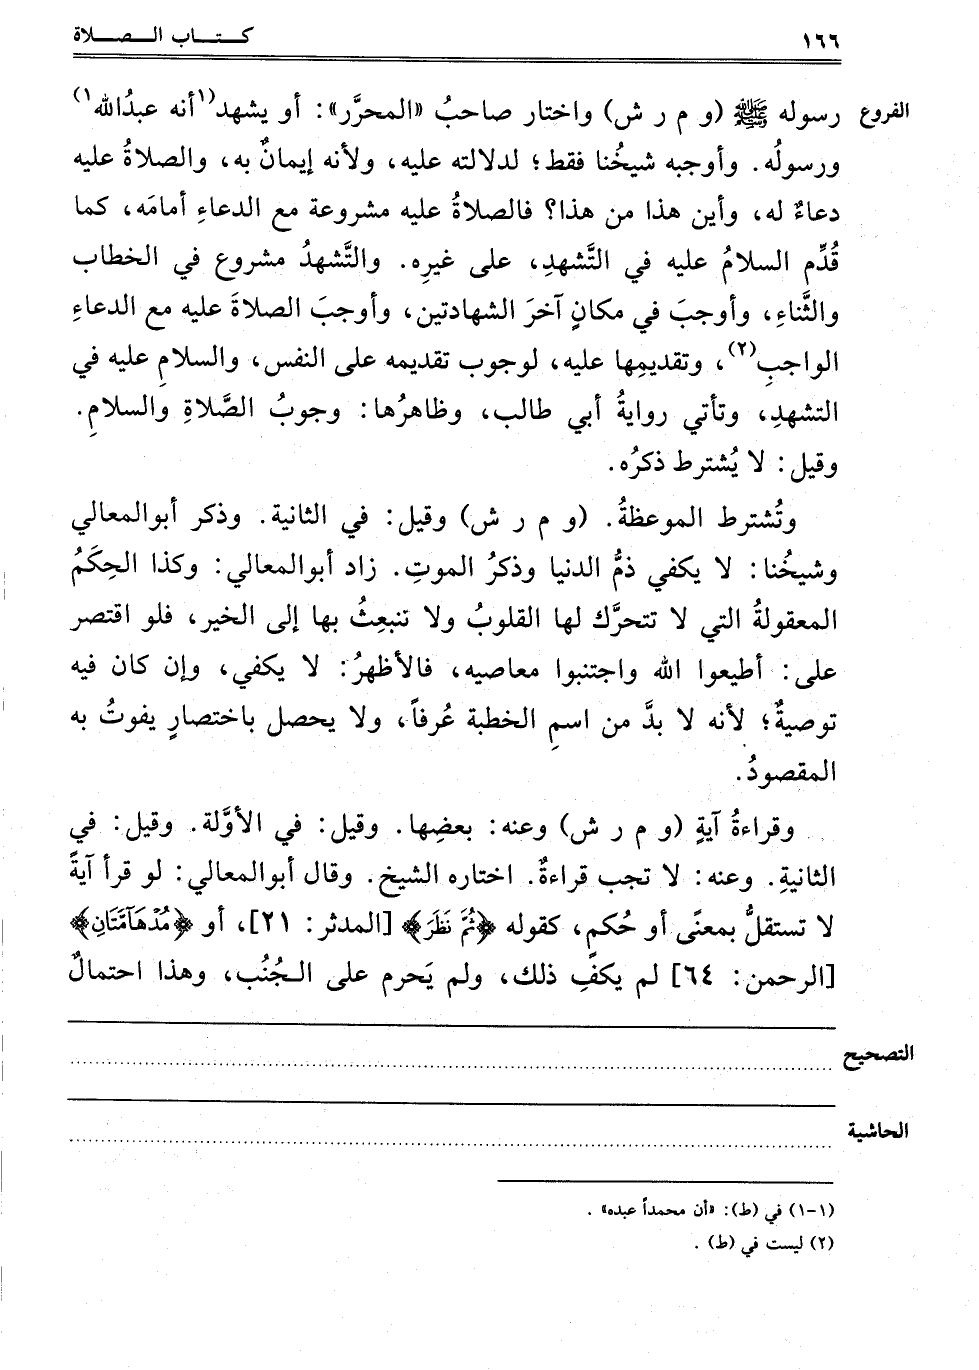 ١٦٦ كتاب الصلاة
الفروع رسوله ﷺ (و م ر ش) واختار صاحبُ «المحرَّر»: أو يشهد (١أنه عبدُالله١)
ورسولُه. وأوجبه شيخُنا فقط؛ لدلالته عليه، ولأنه إيمانٌ به، والصلاةُ عليه
دعاءٌ له، وأين هذا من هذا؟ فالصلاةُ عليه مشروعة مع الدعاءِ أمامَه، كما
قُدِّم السلامُ عليه في التَّشهدِ، على غيرِه. والتَّشهدُ مشروع في الخطاب
والثَّناءِ، وأوجبَ في مكانٍ آخرَ الشهادتين، وأوجبَ الصلاةَ عليه مع الدعاءِ
الواجبِ(٢)، وتقديمِها عليه، لوجوب تقديمه على النفس، والسلامِ عليه في
التشهدِ، وتأتي روايةُ أبي طالب، وظاهرُها: وجوبُ الصَّلاةِ والسلامِ.
وقيل: لا يُشترط ذكرُه.
وتُشترط الموعظةُ. (و م ر ش) وقيل: في الثانية. وذكر أبوالمعالي
وشيخُنا: لا يكفي ذمُّ الدنيا وذكرُ الموتِ. زاد أبوالمعالي: وكذا الحِكَمُ
المعقولةُ التي لا تتحرَّك لها القلوبُ ولا تنبعِثُ بها إلى الخير، فلو اقتصر
على: أطيعوا الله واجتنبوا معاصيه، فالأظهرُ: لا يكفي، وإن كان فيه
توصيةٌ؛ لأنه لا بدَّ من اسمِ الخطبة عُرفاً، ولا يحصل باختصارٍ يفوتُ به
المقصودُ.
وقراءةُ آيةٍ (و م ر ش) وعنه: بعضِها. وقيل: في الأوَّلة. وقيل: في
الثانيةِ. وعنه: لا تجب قراءةٌ. اختاره الشيخ. وقال أبوالمعالي: لو قرأ آيةً
لا تستقلُّ بمعنًى أو حُكمٍ، كقوله ﴿ثُمَّ نَظَرَ﴾ [المدثر: ٢١]، أو ﴿مُدْهَآمَّتَانِ﴾
[الرحمن: ٦٤] لم يكفِ ذلك، ولم يَحرم على الجُنُب، وهذا احتمالٌ
التصحيح
الحاشية
(١-١) في (ط): «أن محمداً عبده» .
(٢) ليست في (ط) .